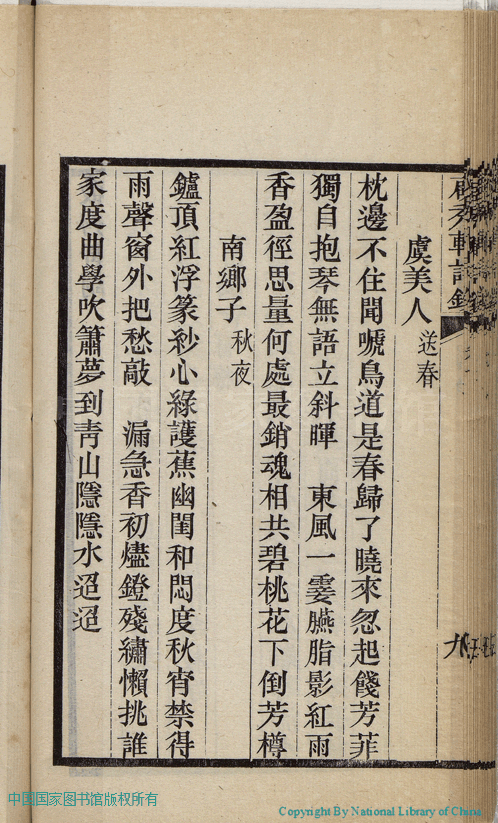 虞美人 送春
枕邊不住聞嗁鳥道是春歸了曉來忽起餞芳菲
獨自抱琴無語立斜暉 東風一霎臙脂影紅雨
香盈徑思量何處最銷魂相共碧桃花下倒芳樽
南鄉子 秋夜
鑪頂紅浮篆紗心綠護蕉幽閨和悶度秋宵禁得
雨聲窗外把愁敲 漏急香初燼鐙殘繡懶挑誰
家度曲學吹簫夢到青山隱隱水迢迢
中国国家图书馆版权所有
Copyright By National Library of China